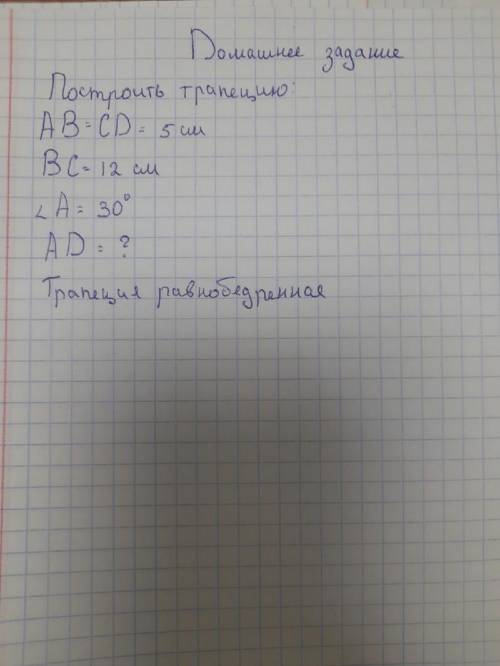 Домашнее задание
Построить трапецию:
AB = CD = 5 см
BC = 12 см
∠A = 30°
AD = ?
Трапеция равнобедренная